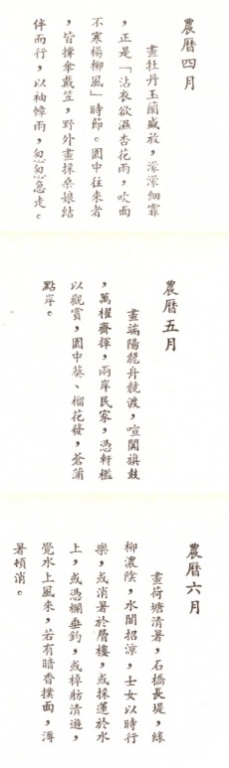 農曆四月
畫牡丹玉蘭盛放,濛濛細霏
,正是「沾衣欲濕杏花雨,吹面
不寒楊柳風」時節。園中往來者
,皆撐傘戴笠,野外畫採桑娘結
伴而行,以袖幛雨,怱怱急走。
農曆五月
畫端陽龍舟競渡,喧闐旗鼓
,萬櫂齊揮,兩岸民家,憑軒檻
以觀賞,園中葵、榴花發,蒼蒲
點岸。
農曆六月
畫荷塘清暑,石橋長堤,綠
柳濃陰,水閣招涼,士女以時行
樂,或消暑於層樓,或採蓮於水
上,或憑欄垂釣,或棹舫清遊,
覺水上風來,若有暗香撲面,溽
暑頓消。